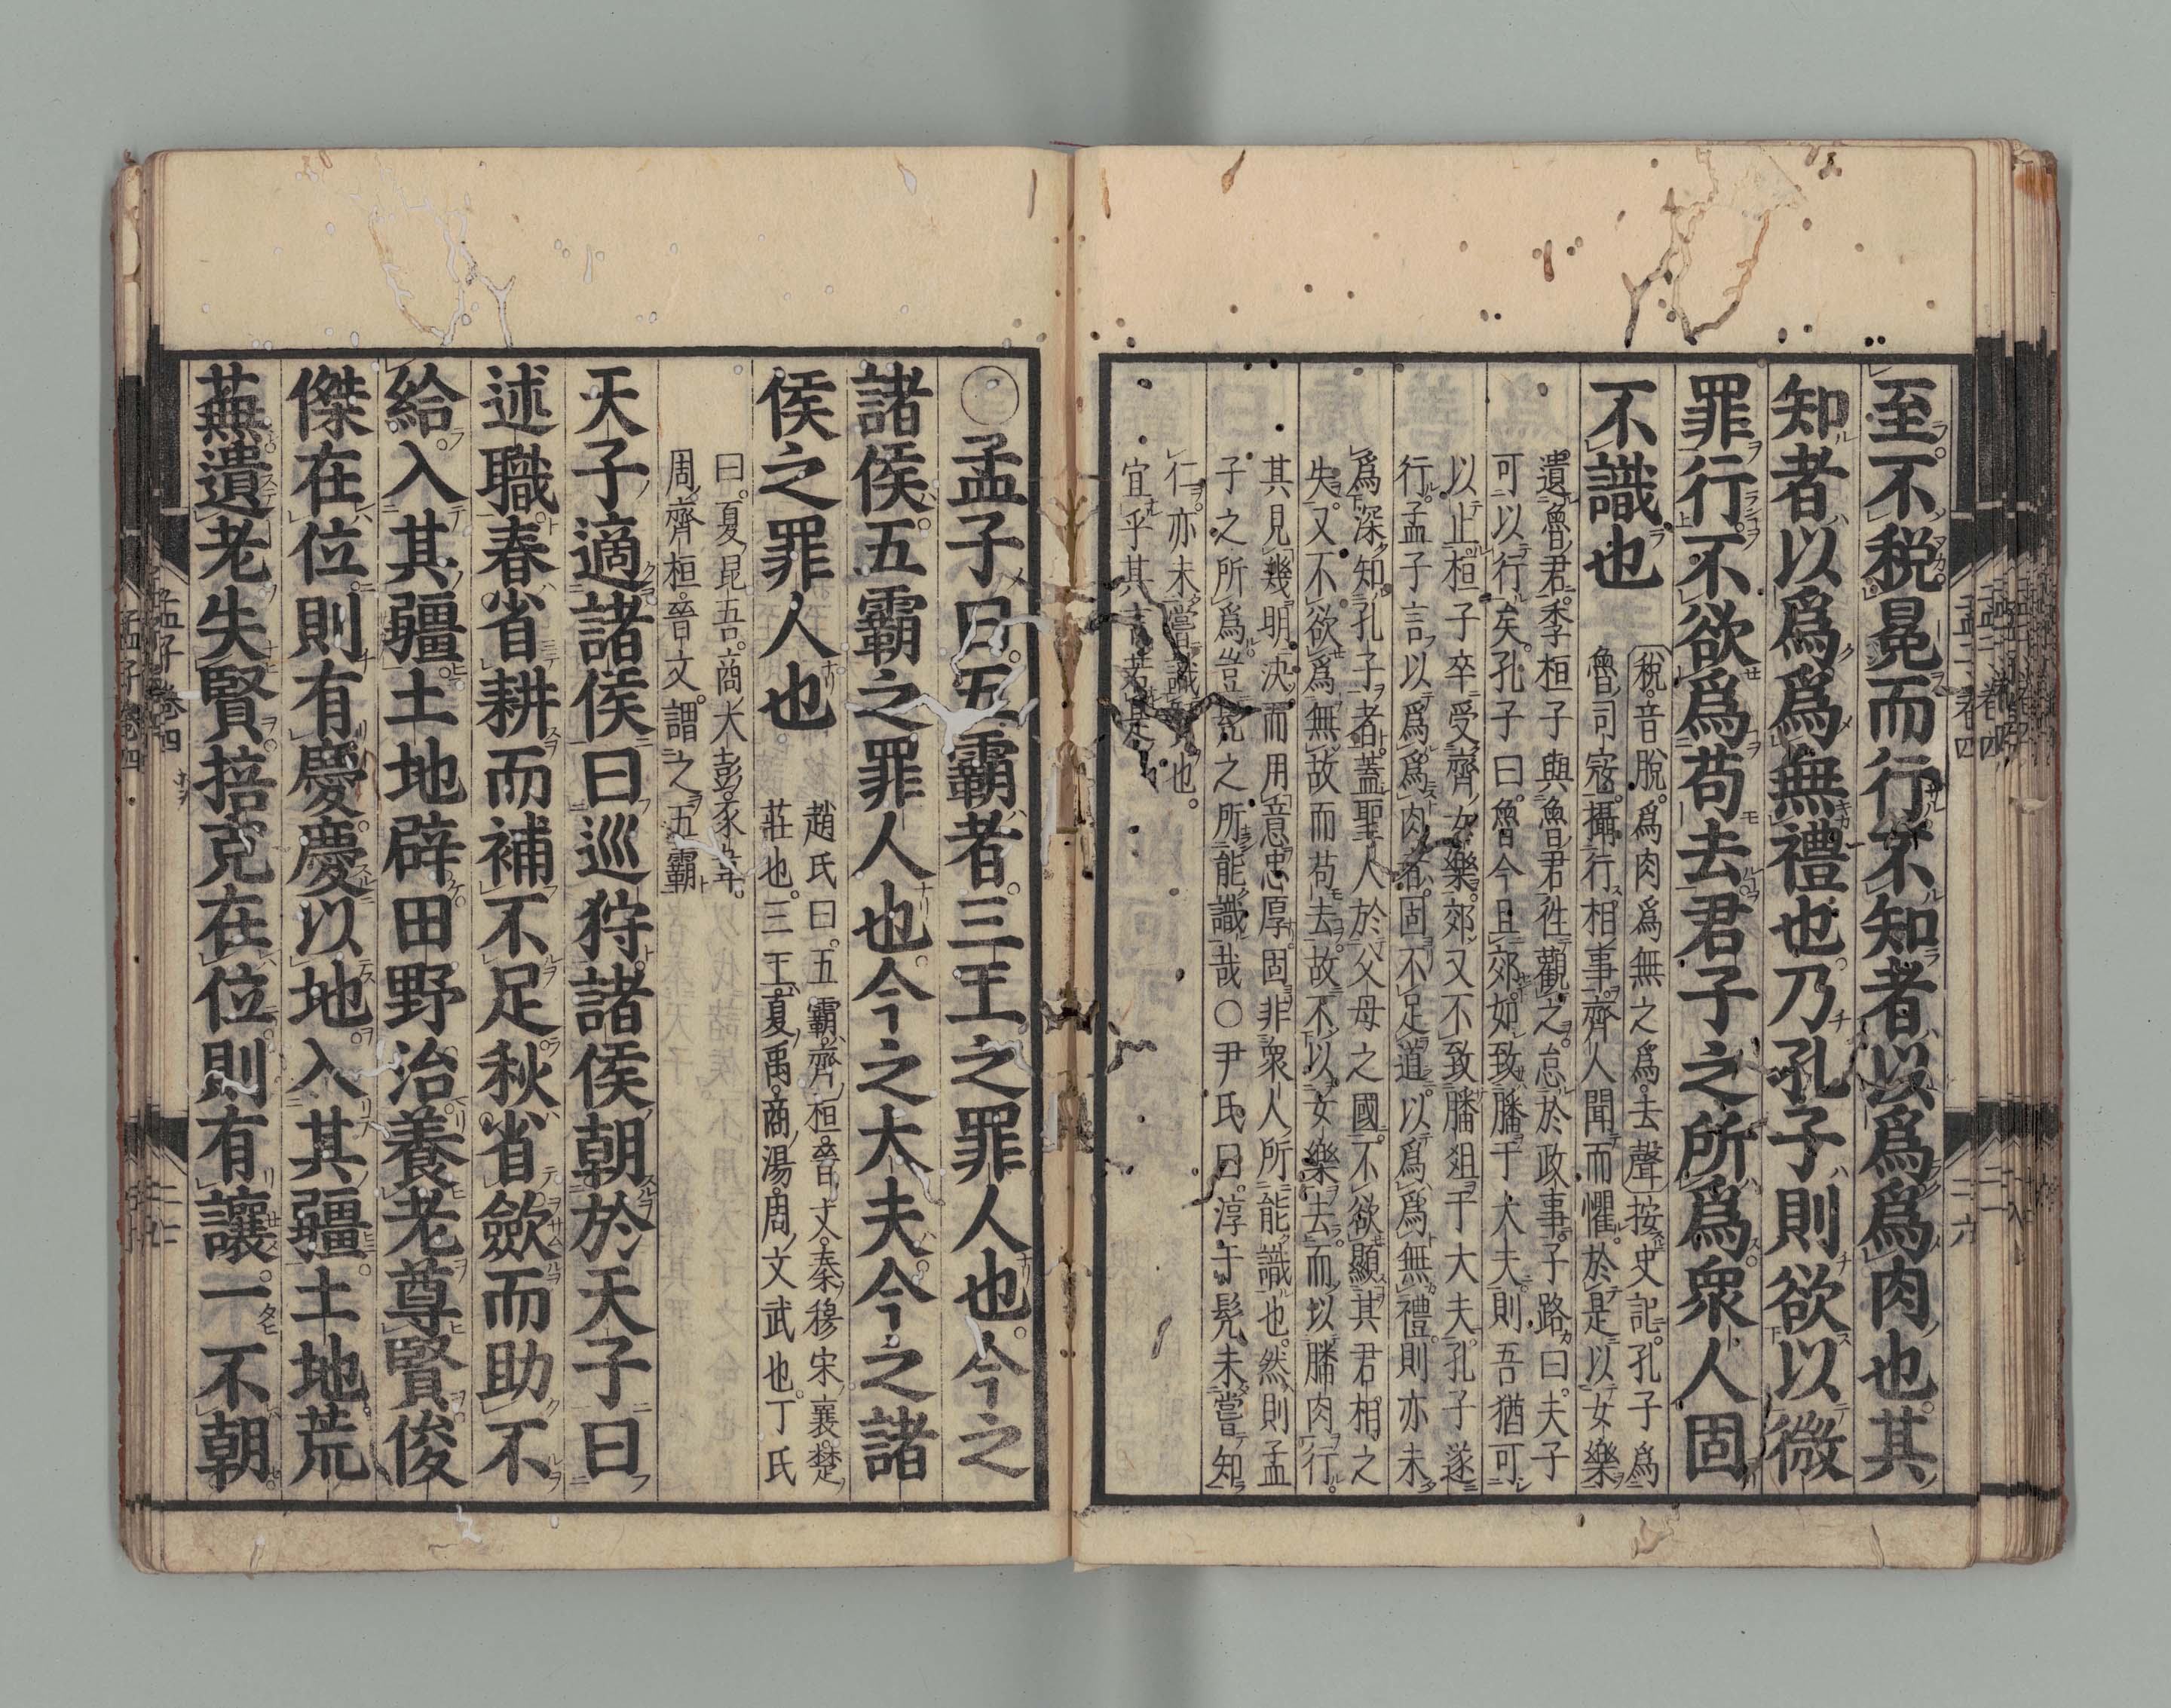 至不税冕而行不知者以爲爲肉也其
知者以爲爲無禮也乃孔子則欲以微
罪行不欲爲苟去君子之所爲衆人固
不識也
税音脫爲肉爲無之爲去聲按史記孔子爲
魯司寇攝行相事齊人聞而懼於是以女樂
遺魯君季桓子與魯君徃觀之怠於政事子路曰夫子
可以行矣孔子曰魯今且郊如致膰于大夫則吾猶可
以止桓子卒受齊女樂郊又不致膰俎于大夫孔子遂
行孟子言以爲爲肉者固不足道以爲爲無禮則亦未
爲深知孔子者蓋聖人於父母之國不欲顯其君相之
失又不欲爲無故而苟去故不以女樂去而以膰肉行
其見幾明决而用意忠厚固非衆人所能識也然則孟
子之所爲豈髡之所能識哉○尹氏曰淳于髡未嘗知
仁亦未嘗識也
宜乎其言若是
○孟子曰五霸者三王之罪人也今之
諸侯五霸之罪人也今之大夫今之諸
侯之罪人也
趙氏曰五霸齊桓晉文秦穆宋襄楚
莊也三王夏禹商湯周文武也丁氏
曰夏昆吾商大彭豕韋
周齊桓晉文謂之五霸
天子適諸侯曰巡狩諸侯朝於天子曰
述職春省耕而補不足秋省斂而助不
給入其疆土地辟田野治養老尊賢俊
傑在位則有慶慶以地入其疆土地荒
蕪遺老失賢掊克在位則有讓一不朝
孟子 卷四
二六
孟子 卷四
二七